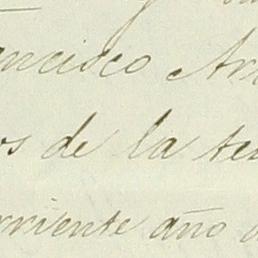 ancisco Ar
os de la te
rriente año d